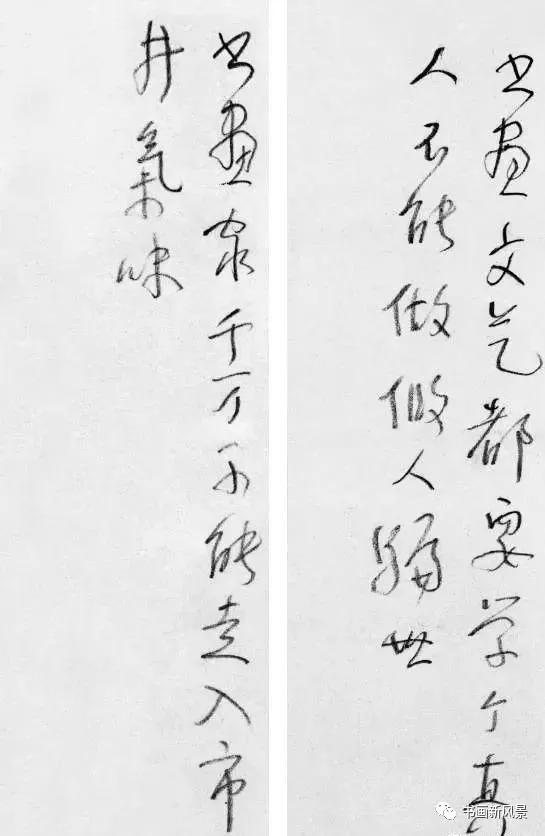 书畫文艺都要学个真
人不能做假人骗世
书畫家千万不能走入市
井氣味
书画新风景